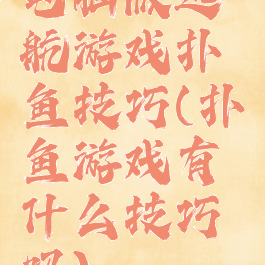 航游戏扑
鱼技巧(扑
鱼游戏有
什么技巧